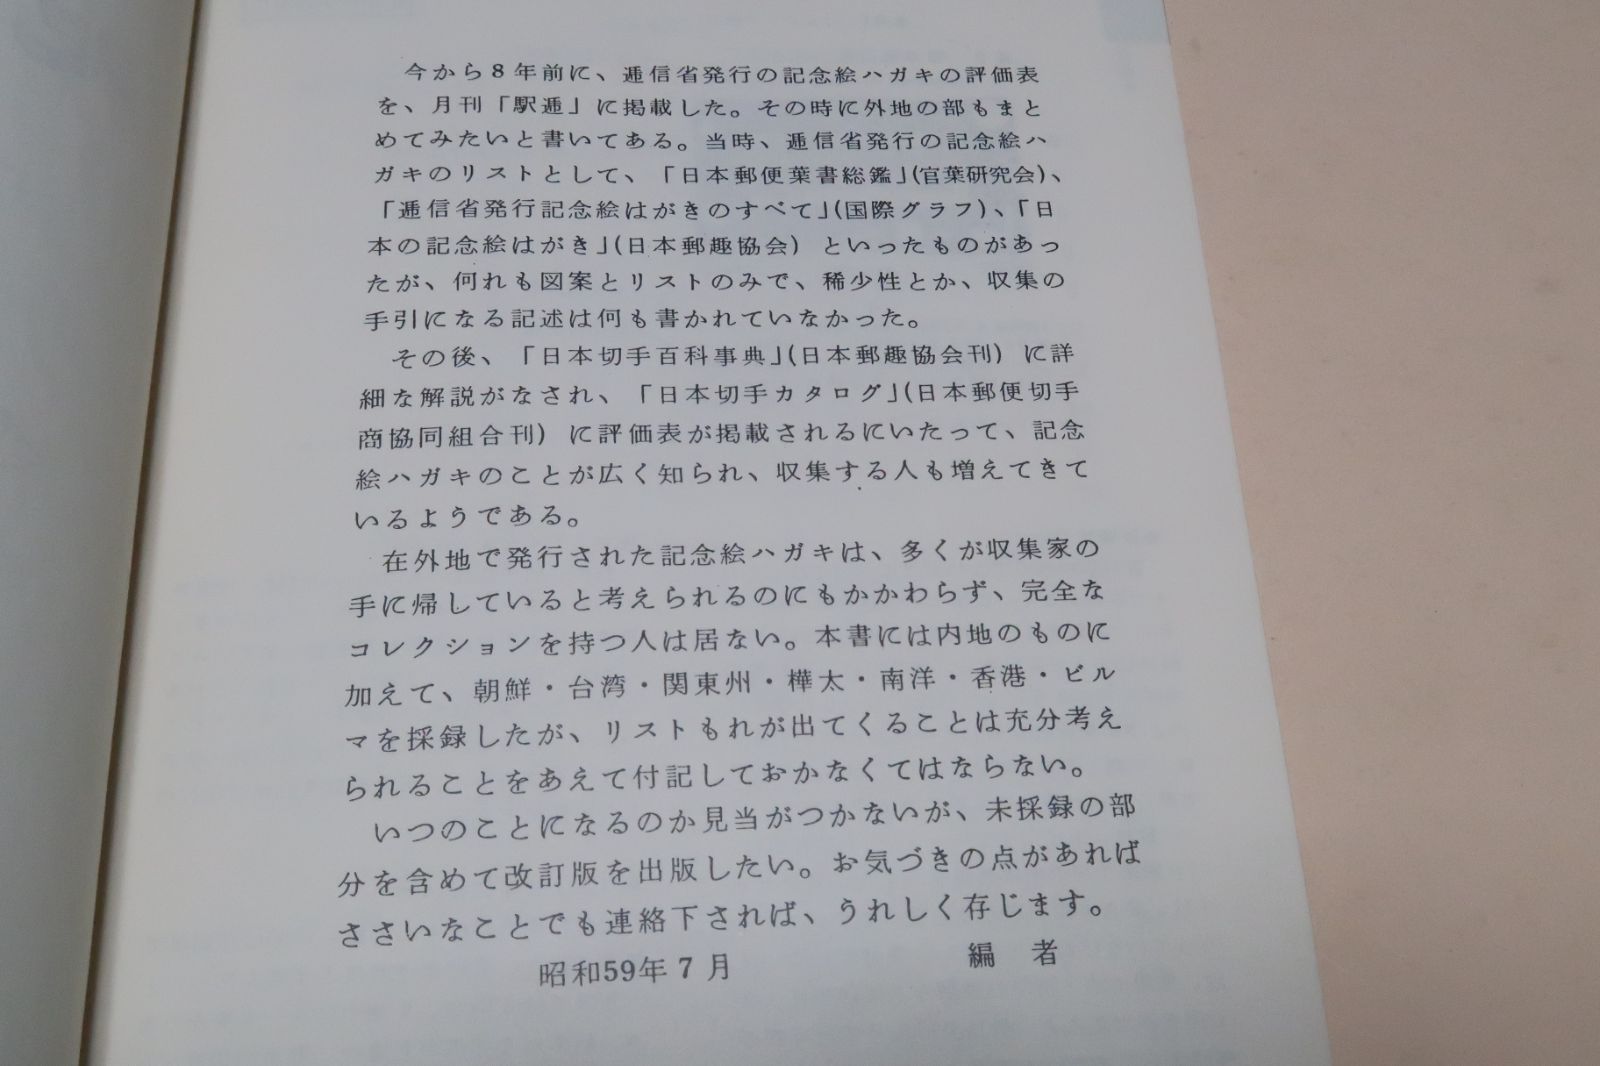 今から8年前に、逓信省発行の記念絵ハガキの評価表
を、月刊「駅逓」に掲載した。その時に外地の部もまと
めてみたいと書いてある。当時、逓信省発行の記念絵ハ
ガキのリストとして、「日本郵便葉書総鑑」(官葉研究会)、
「逓信省発行記念絵はがきのすべて」(国際グラフ)、「日
本の記念絵はがき」(日本郵趣協会) といったものがあっ
たが、何れも図案とリストのみで、稀少性とか、収集の
手引になる記述は何も書かれていなかった。
その後、「日本切手百科事典」(日本郵趣協会刊) に詳
細な解説がなされ、「日本切手カタログ」(日本郵便切手
商協同組合刊) に評価表が掲載されるにいたって、記念
絵ハガキのことが広く知られ、収集する人も増えてきて
いるようである。
在外地で発行された記念絵ハガキは、多くが収集家の
手に帰していると考えられるのにもかかわらず、完全な
コレクションを持つ人は居ない。本書には内地のものに
加えて、朝鮮・台湾・関東州・樺太・南洋・香港・ビル
マを採録したが、リストもれが出てくることは充分考え
られることをあえて付記しておかなくてはならない。
いつのことになるのか見当がつかないが、未採録の部
分を含めて改訂版を出版したい。お気づきの点があれば
ささいなことでも連絡下されば、うれしく存じます。
昭和59年7月 編 者